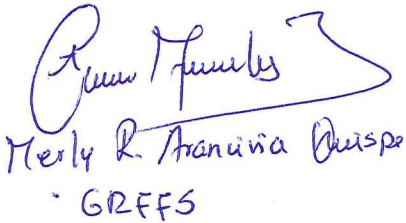 Merly R. Arancivia Quispe
GRFFS